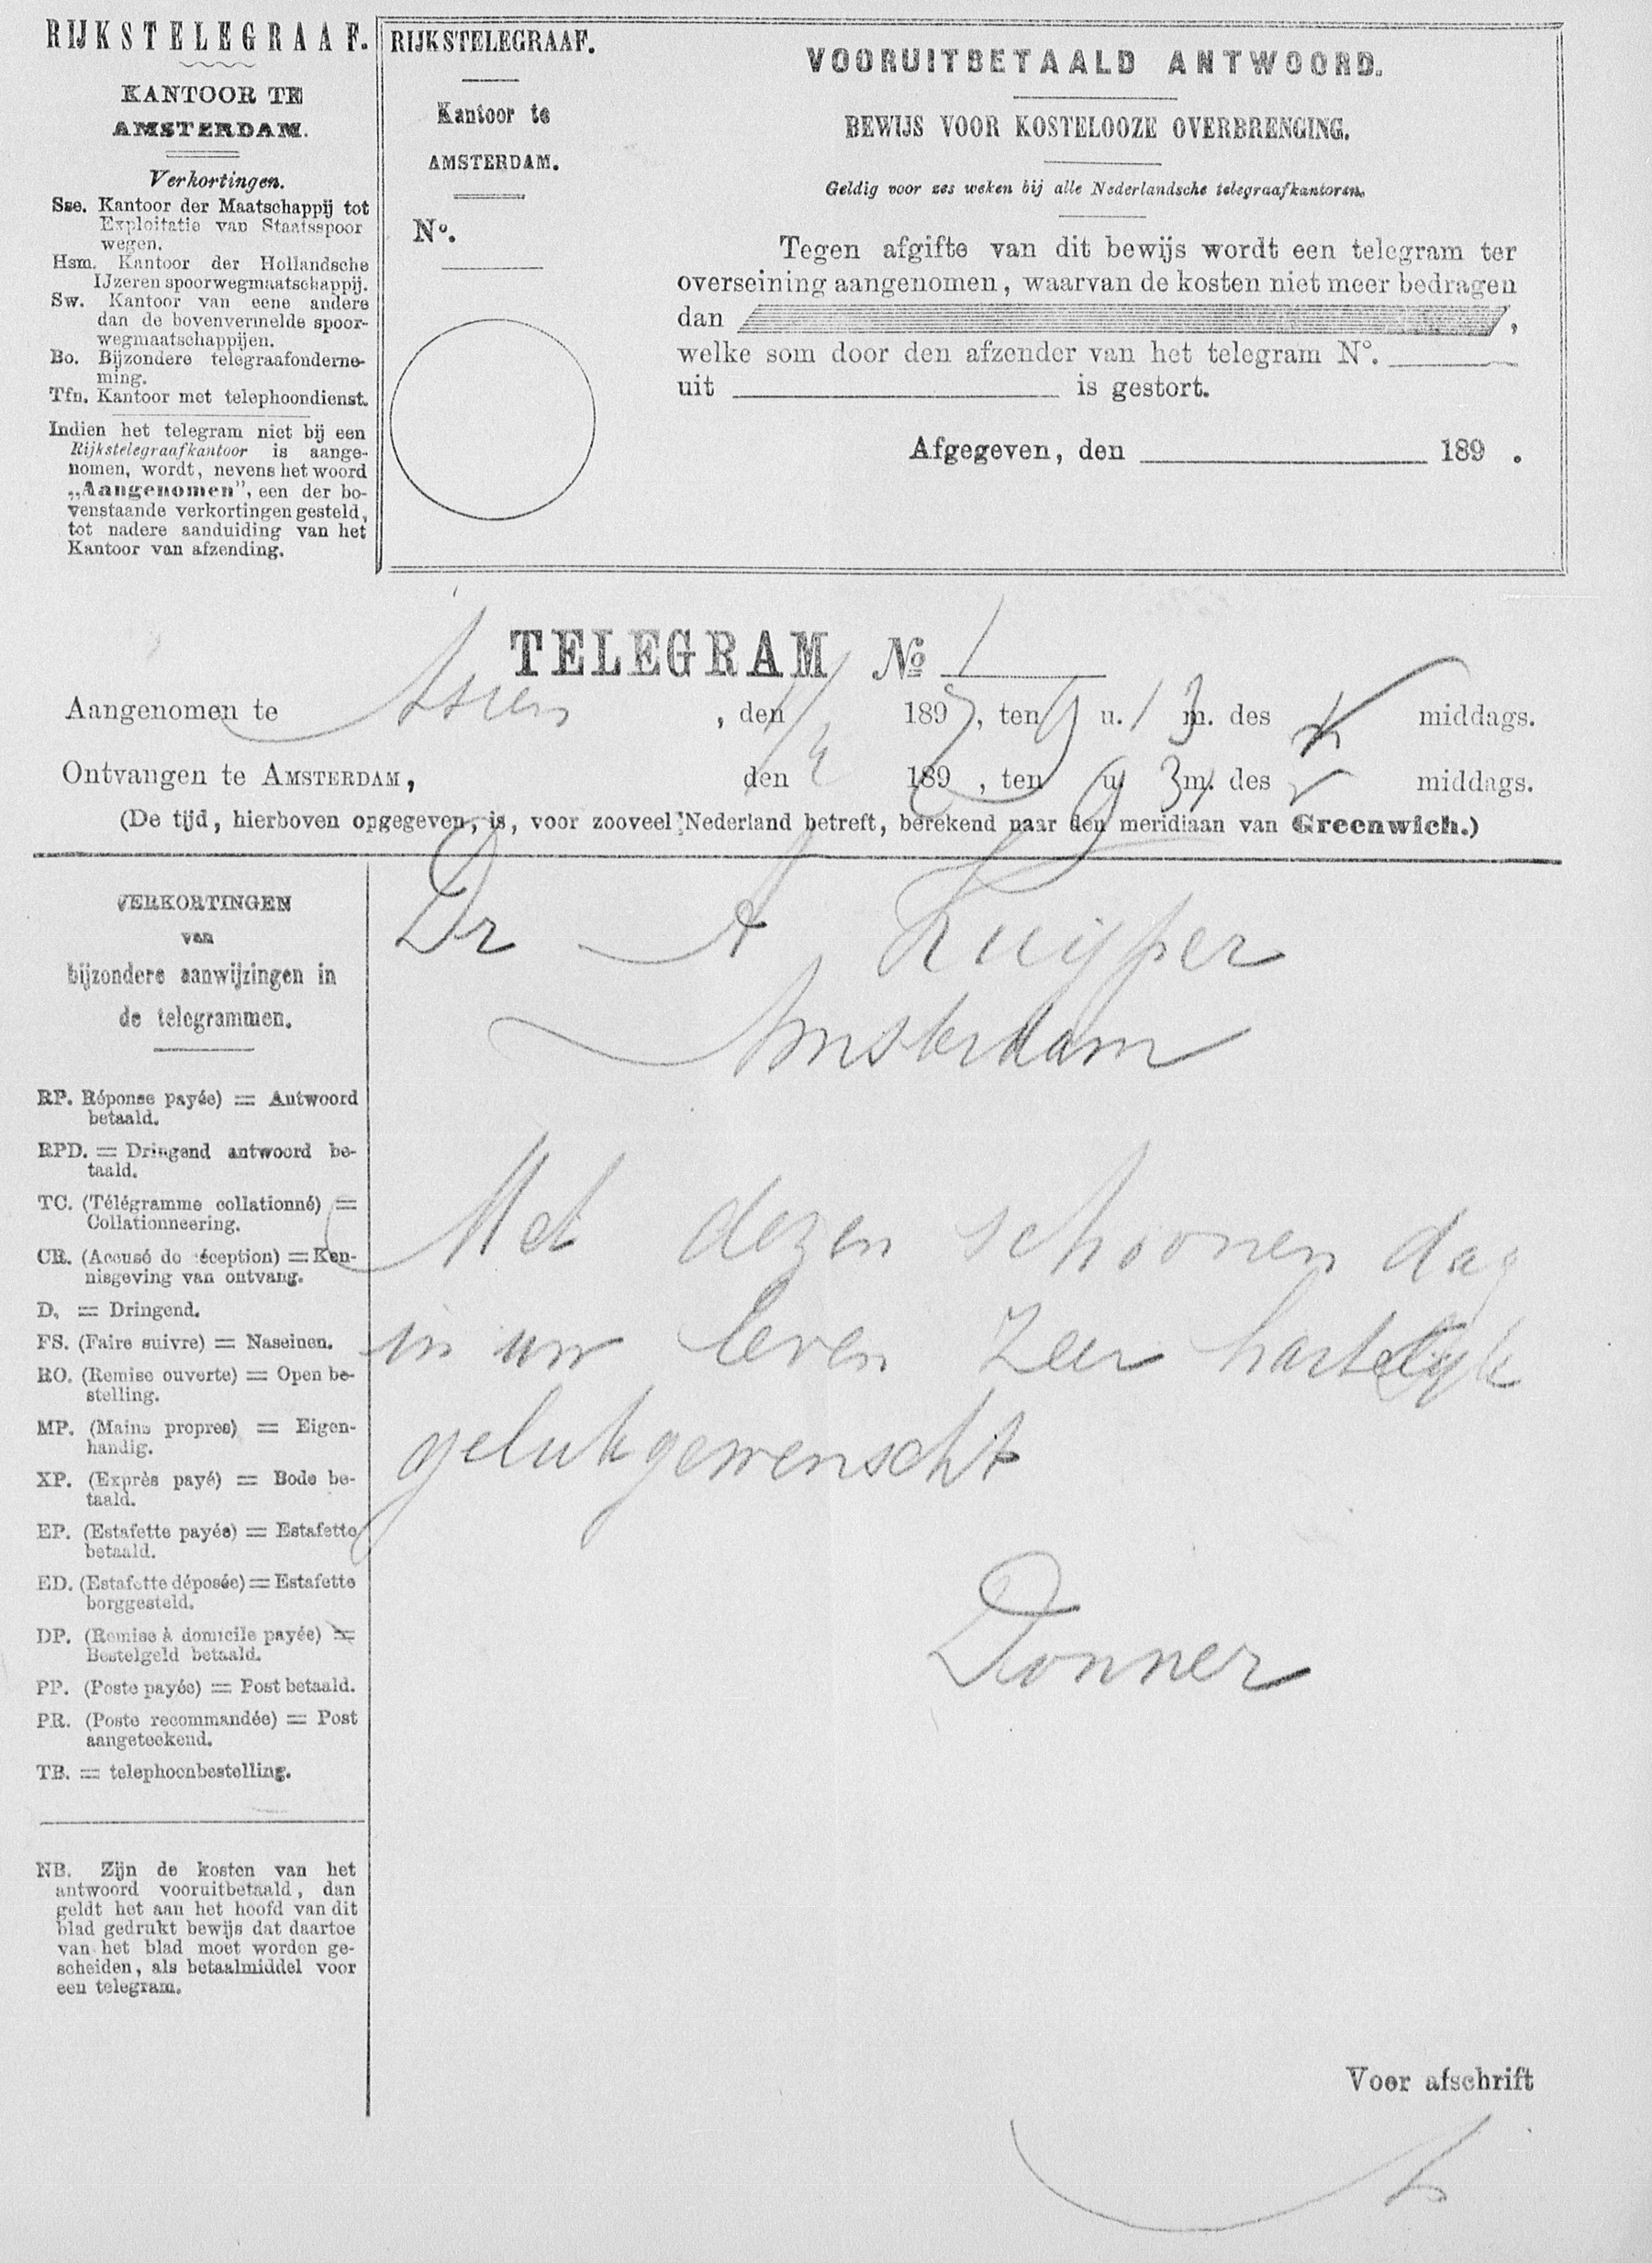 RIJKSTELEGRAAF.
KANTOOR TE
AMSTERDAM.
Verkortingen.
Sse. Kantoor der Maatschappij tot
Exploitatie van Staatsspoor
wegen.
Hsm. Kantoor der Hollandsche
IJzeren spoorwegmaatschappij.
Sw. Kantoor van eene andere
dan de bovenvermelde spoor-
wegmaatschappijen.
Bo. Bijzondere telegraafonderne-
ming.
Tfn. Kantoor met telephoondienst.
Indien het telegram niet bij een
Rijkstelegraafkantoor is aange-
nomen, wordt, nevens het woord
„Aangenomen”, een der bo-
venstaande verkortingen gesteld,
tot nadere aanduiding van het
Kantoor van afzending.
RIJKSTELEGRAAF.
Kantoor te
AMSTERDAM.
No.
VOORUITBETAALD ANTWOORD.
BEWIJS VOOR KOSTELOOZE OVERBRENGING.
Geldig voor zes weken bij alle Nederlandsche telegraafkantoren.
Tegen afgifte van dit bewijs wordt een telegram ter
overseining aangenomen, waarvan de kosten niet meer bedragen
dan ,
welke som door den afzender van het telegram No.
uit is gestort.
Afgegeven, den 189 .
TELEGRAM No 1
Aangenomen te Assen , den 1/4 1897, ten 9 u. 13 m. des middags.
Ontvangen te AMSTERDAM, den 1/4 1897, ten 9 u. 3 m. des middags.
(De tijd, hierboven opgegeven, is, voor zooveel Nederland betreft, berekend naar den meridiaan van Greenwich.)
VERKORTINGEN
van
bijzondere aanwijzingen in
de telegrammen.
RP. Réponse payée) = Antwoord
betaald.
RPD. = Dringend antwoord be-
taald.
TC. (Télégramme collationné) =
Collationneering.
CR. (Accusé de réception) = Ken-
nisgeving van ontvang.
D. = Dringend.
FS. (Faire suivre) = Naseinen.
RO. (Remise ouverte) = Open be-
stelling.
MP. (Mains propres) = Eigen-
handig.
XP. (Exprès payé) = Bode be-
taald.
EP. (Estafette payée) = Estafette
betaald.
ED. (Estafette déposée) = Estafette
borggesteld.
DP. (Remise à domicile payée) =
Bestelgeld betaald.
PP. (Poste payée) = Post betaald.
PR. (Poste recommandée) = Post
aangeteekend.
TB. = telephoonbestelling.
NB. Zijn de kosten van het
antwoord vooruitbetaald, dan
geldt het aan het hoofd van dit
blad gedrukt bewijs dat daartoe
van het blad moet worden ge-
scheiden, als betaalmiddel voor
een telegram.
Dr A Kuijper
Amsterdam
Met dezen schoonen dag
in uw leven zeer hartelijk
gelukgewenscht
Donner
Voor afschrift